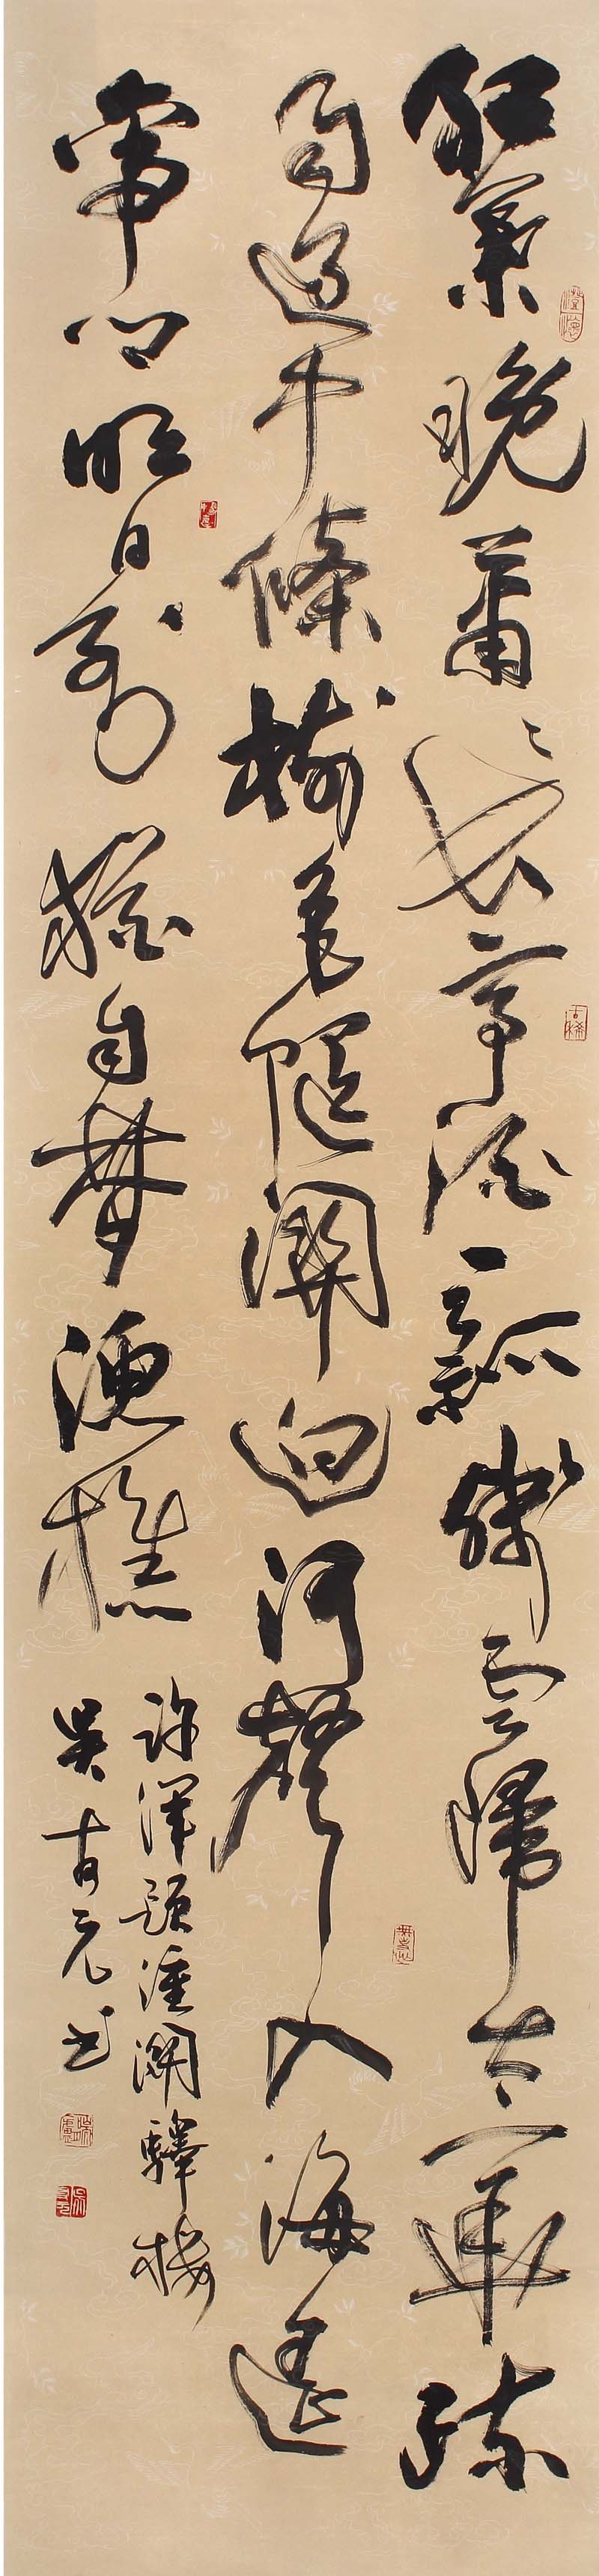 紅葉晚蕭〻長亭酒一瓢殘雲歸太華疏
雨過中條樹色隨關迥河聲入海遥
帝鄉明日到猶自夢漁樵
許渾題潼關驛樓
吳元书
澄懷
古稀